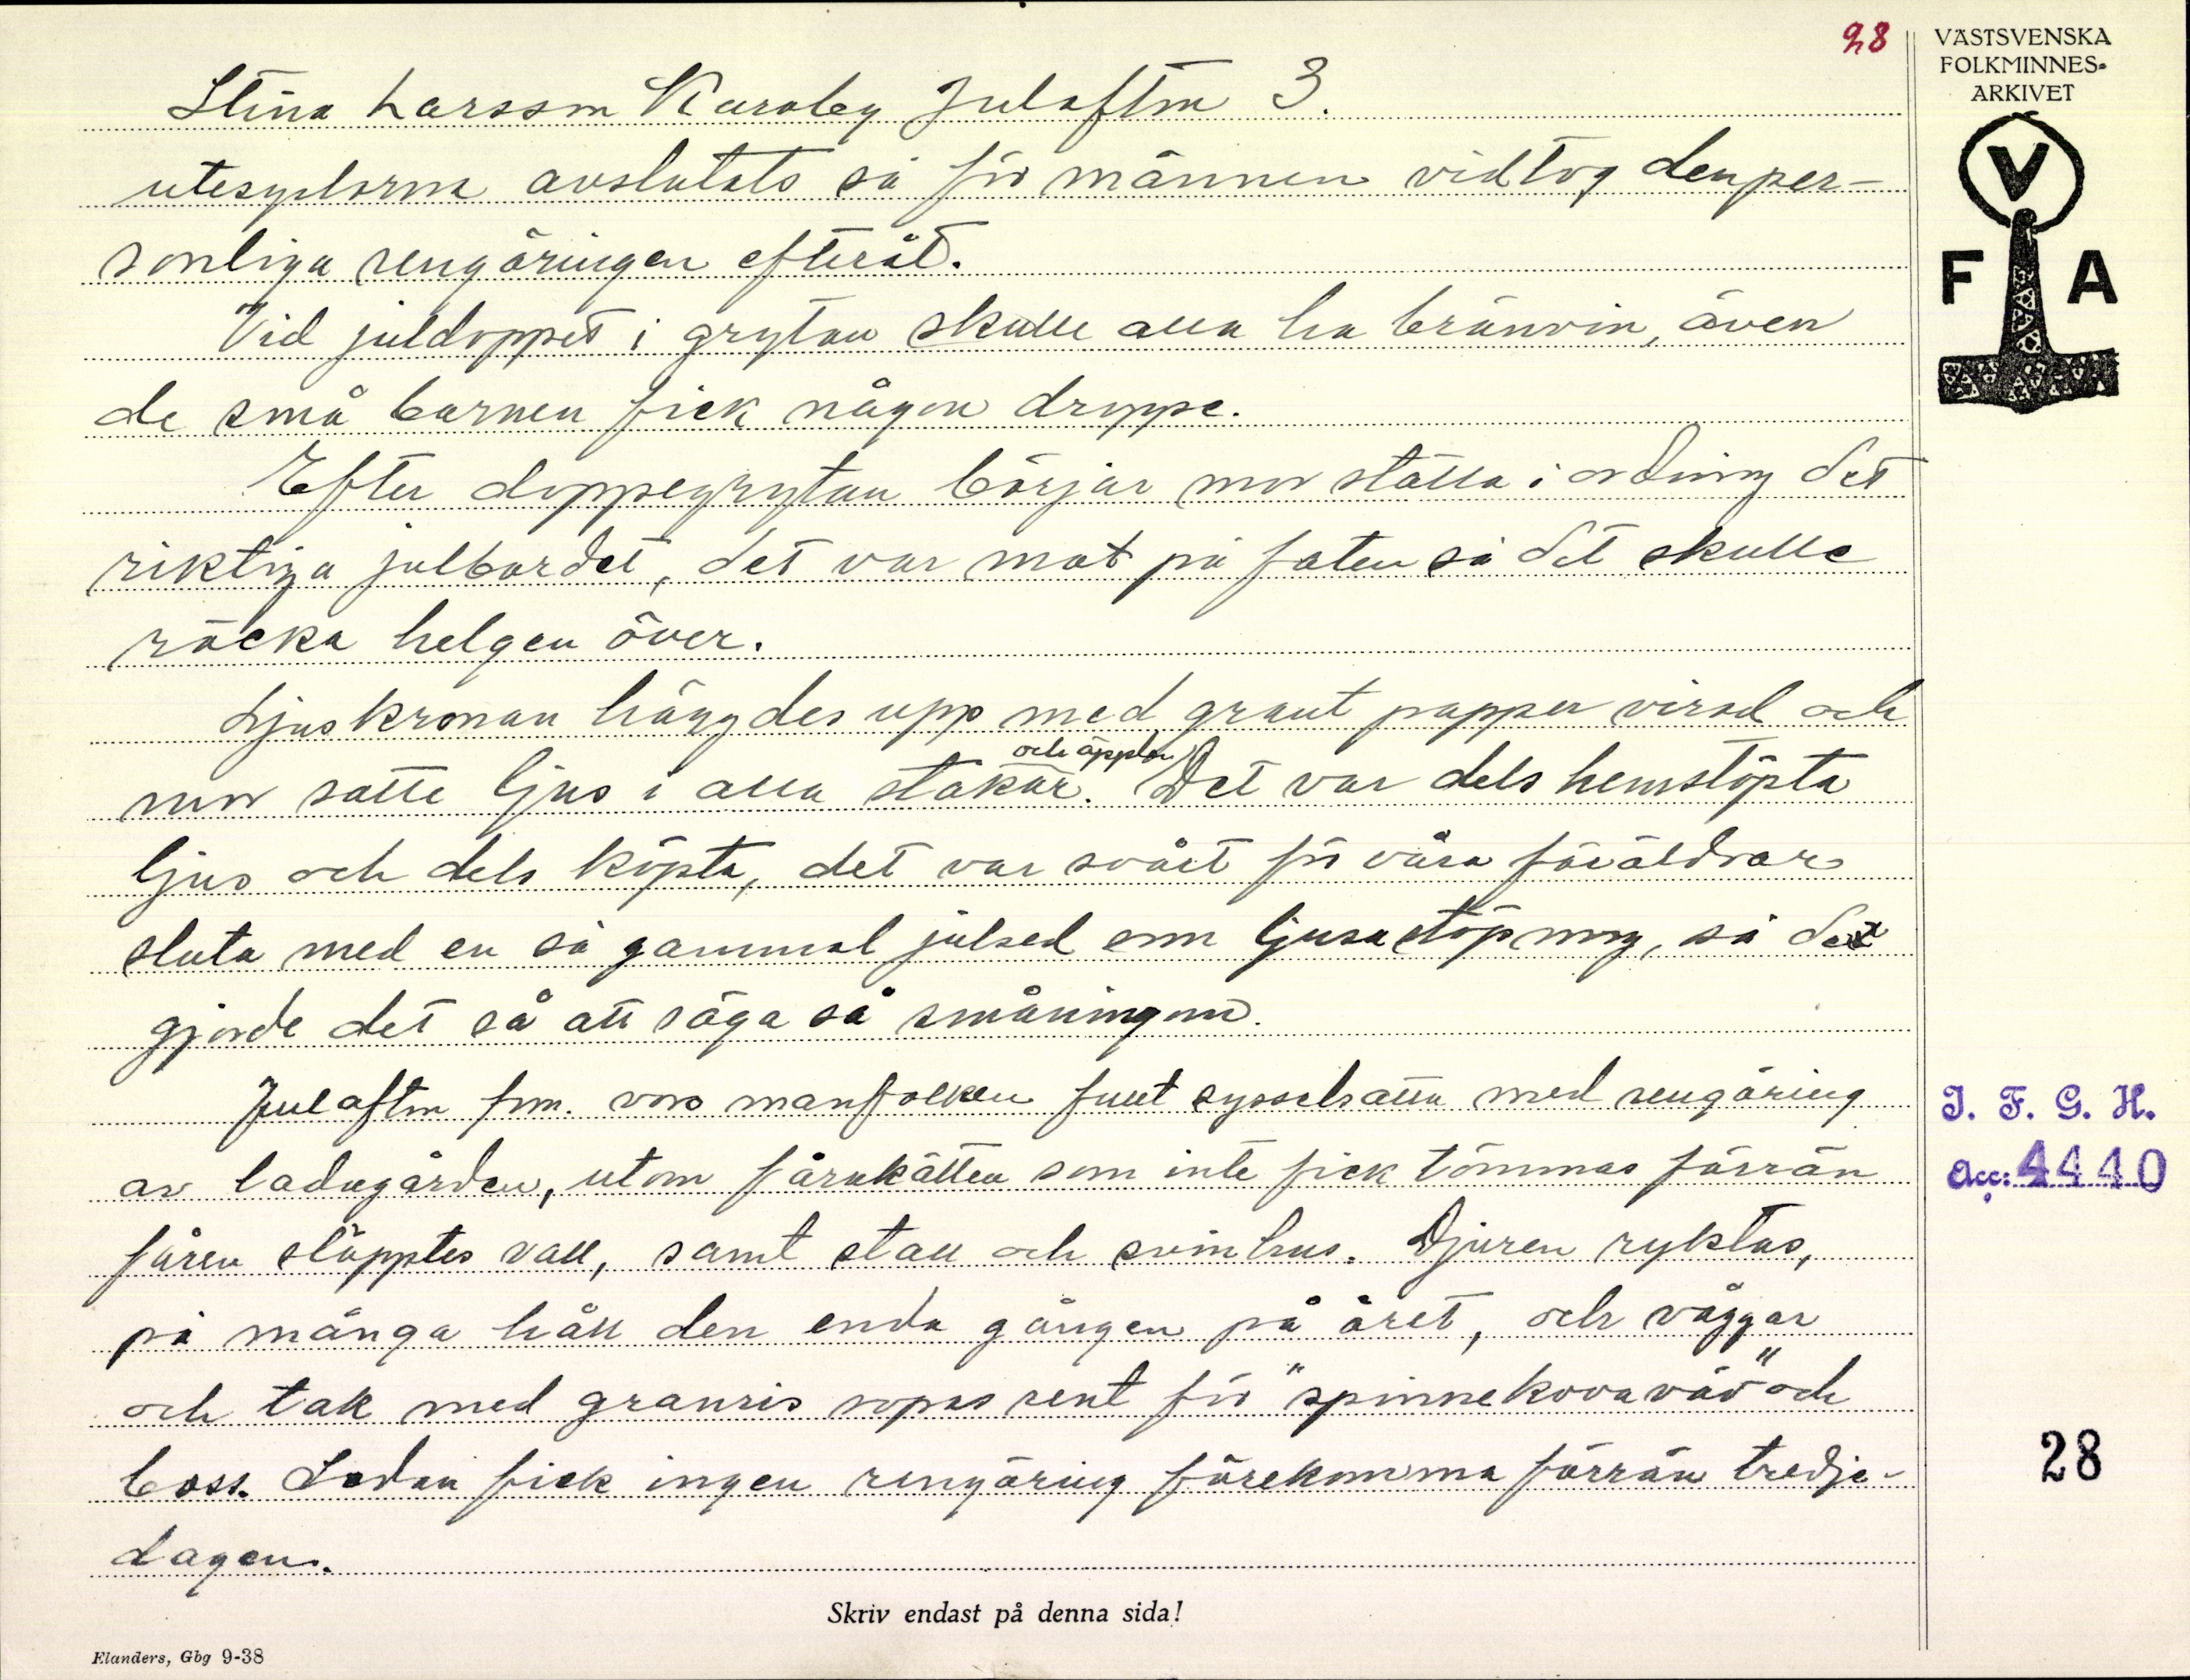 28
VÄSTSVENSKA
FOLKMINNES-
ARKIVET
V
F A
Stina Larsson Karaby Julafton 3.
utesyslorna avslutats så för männen vidtog den per-
sonliga rengöringen efteråt.
Vid juldoppet i grytan skulle alla ha bränvin, även
de små barnen fick någon droppe.
Efter doppegrytan börjar mor ställa i ordning det
riktiga julbordet, det var mat på faten så det skulle
räcka helgen över.
Ljuskronan hängdes upp med grant papper virad och
och äpplen
mor satte ljus i alla stakar. Det var dels hemstöpta
ljus och dels köpta, det var svårt för våra föräldrar
sluta med en så gammal julsed som ljusastöpning, så de
gjorde det så att säga så småningom.
Julafton fm. voro manfolken fullt sysselsatta med rengöring
av ladugården, utom fårakätten som inte fick tömmas förrän
fåren släpptes vall, samt stall och svinhus. Djuren ryktas,
på många håll den enda gången på året, och väggar
och tak med granris sopas rent för "spinnekovaväv" och
boss. Sedan fick ingen rengöring förekomma förrän tredje-
dagen.
J. F. G. H.
Acc: 4440
28
Skriv endast på denna sida!
Elanders, Gbg 9-38